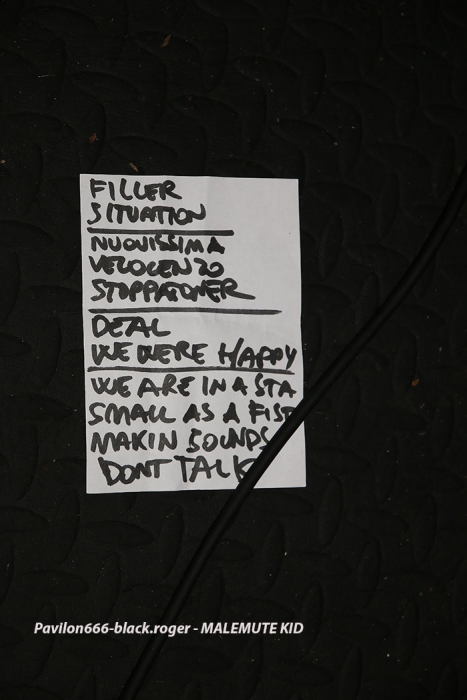 FILLER
SITUATION
NUOVISSIMA
VELOCENZO
STOPPATOMER
DEAL
WE WERE HAPPY
WE ARE IN A STA
SMALL AS A FIST
MAKIN SOUNDS
DONT TALK
Pavilon666-black.roger - MALEMUTE KID